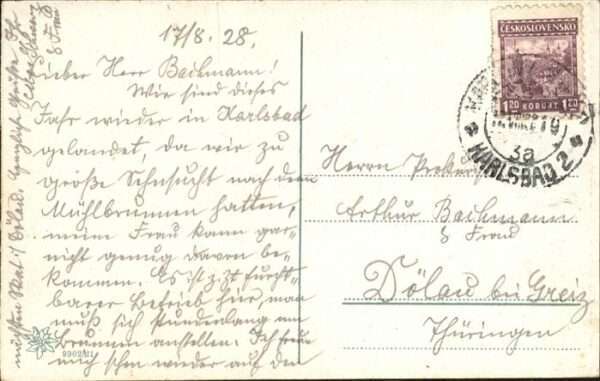 17/8. 28.
Lieber Herr Bachmann!
Wir sind dieses
Jahr wieder in Karlsbad
gelandet, da wir zu
große Sehnsucht nach dem
Mühlbrunnen hatten,
meine Frau kann gar
nicht genug davon be-
kommen. Es ist z. Zt. furcht-
barer Betrieb hier, man
muß sich stundenlang am
Brunnen anstellen. Ich freue
mich schon wieder auf den
nächsten Skat i/ Dölau. Herzliche Grüße Ihr
& Frau
9902/II
ČESKOSLOVENSKO
1.20 KORUNA 1.20
3a
KARLSBAD 2
Herrn
Arthur Bachmann
& Frau
Dölau bei Greiz
Thüringen